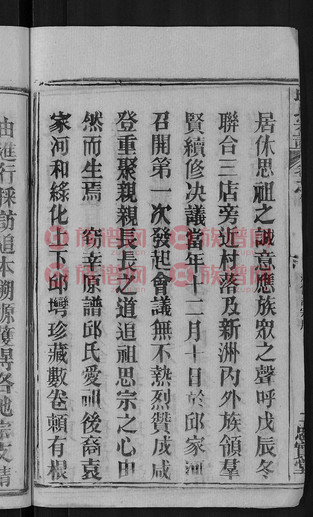 居休思祖之誠意應族眾之聲呼戊辰冬
聯合三店旁近村落及新洲內外族領羣
賢續修决議當年十二月十日於邱家河
召開第一次發起會議無不熱烈贊成咸
登重聚親親長長之道追祖思宗之心由
然而生焉 竊幸原譜邱氏愛親後裔袁
家河和綠化上下邱塆珍藏數卷頼有根
由進行採訪追本溯源獲得各地宗支請
族譜网